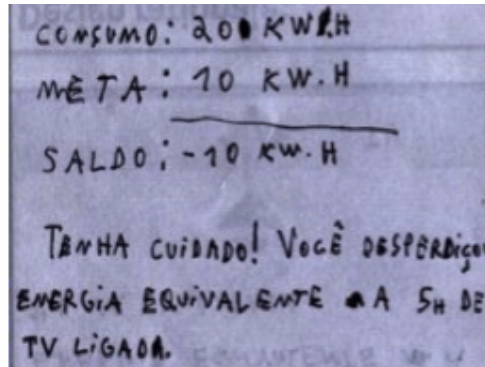 CONSUMO: 20 KW.H
META: 10 KW.H
SALDO: -10 KW.H
TENHA CUIDADO! VOCÊ DESPERDIÇOU
ENERGIA EQUIVALENTE A 5H DE
TV LIGADA.